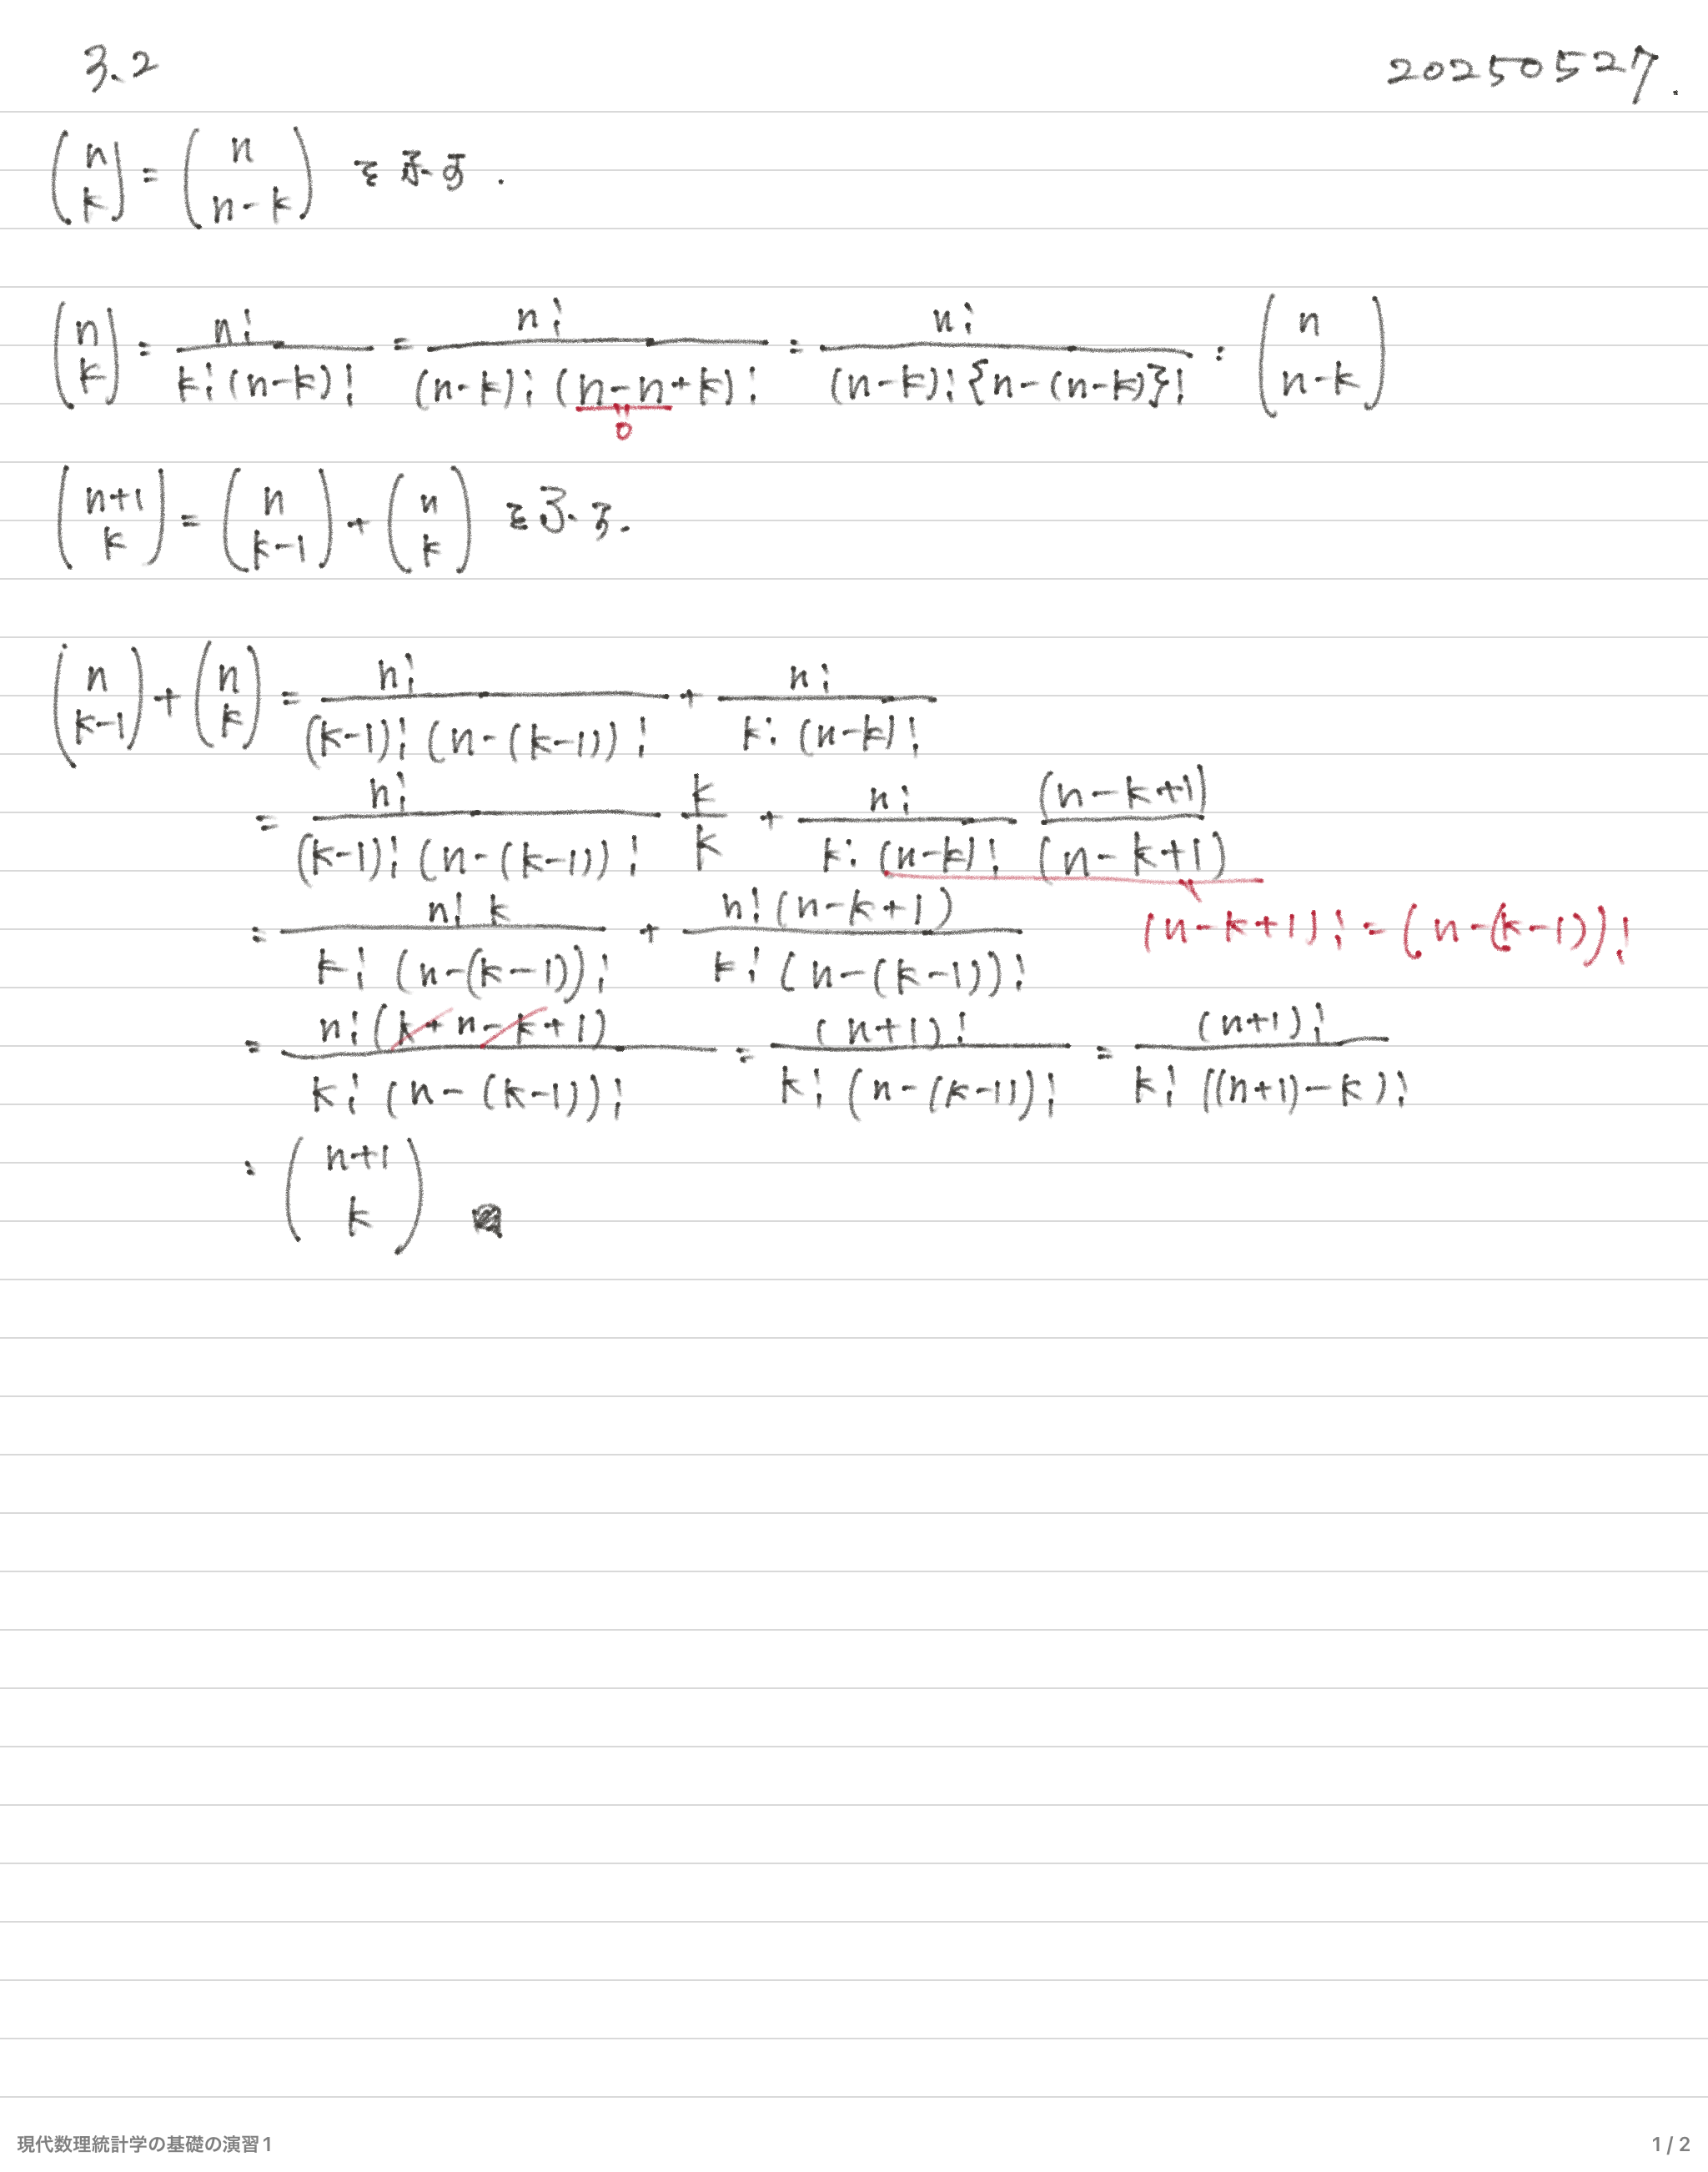 3.2 20250527.
(n k) = (n n-k) を示す.
(n k) = n! / k!(n-k)! = n! / (n-k)!(n-n+k)! = n! / (n-k)!{n-(n-k)}! = (n n-k)
0
(n+1 k) = (n k-1) + (n k) を示す.
(n k-1) + (n k) = n! / (k-1)!(n-(k-1))! + n! / k!(n-k)!
= n! / (k-1)!(n-(k-1))! k/k + n! / k!(n-k)! (n-k+1)/(n-k+1)
= n! k / k!(n-(k-1))! + n!(n-k+1) / k!(n-(k-1))! (n-k+1)! = (n-(k-1))!
= n!(k+n-k+1) / k!(n-(k-1))! = (n+1)! / k!(n-(k-1))! = (n+1)! / k!((n+1)-k)!
= (n+1 k)
現代数理統計学の基礎の演習1 1 / 2